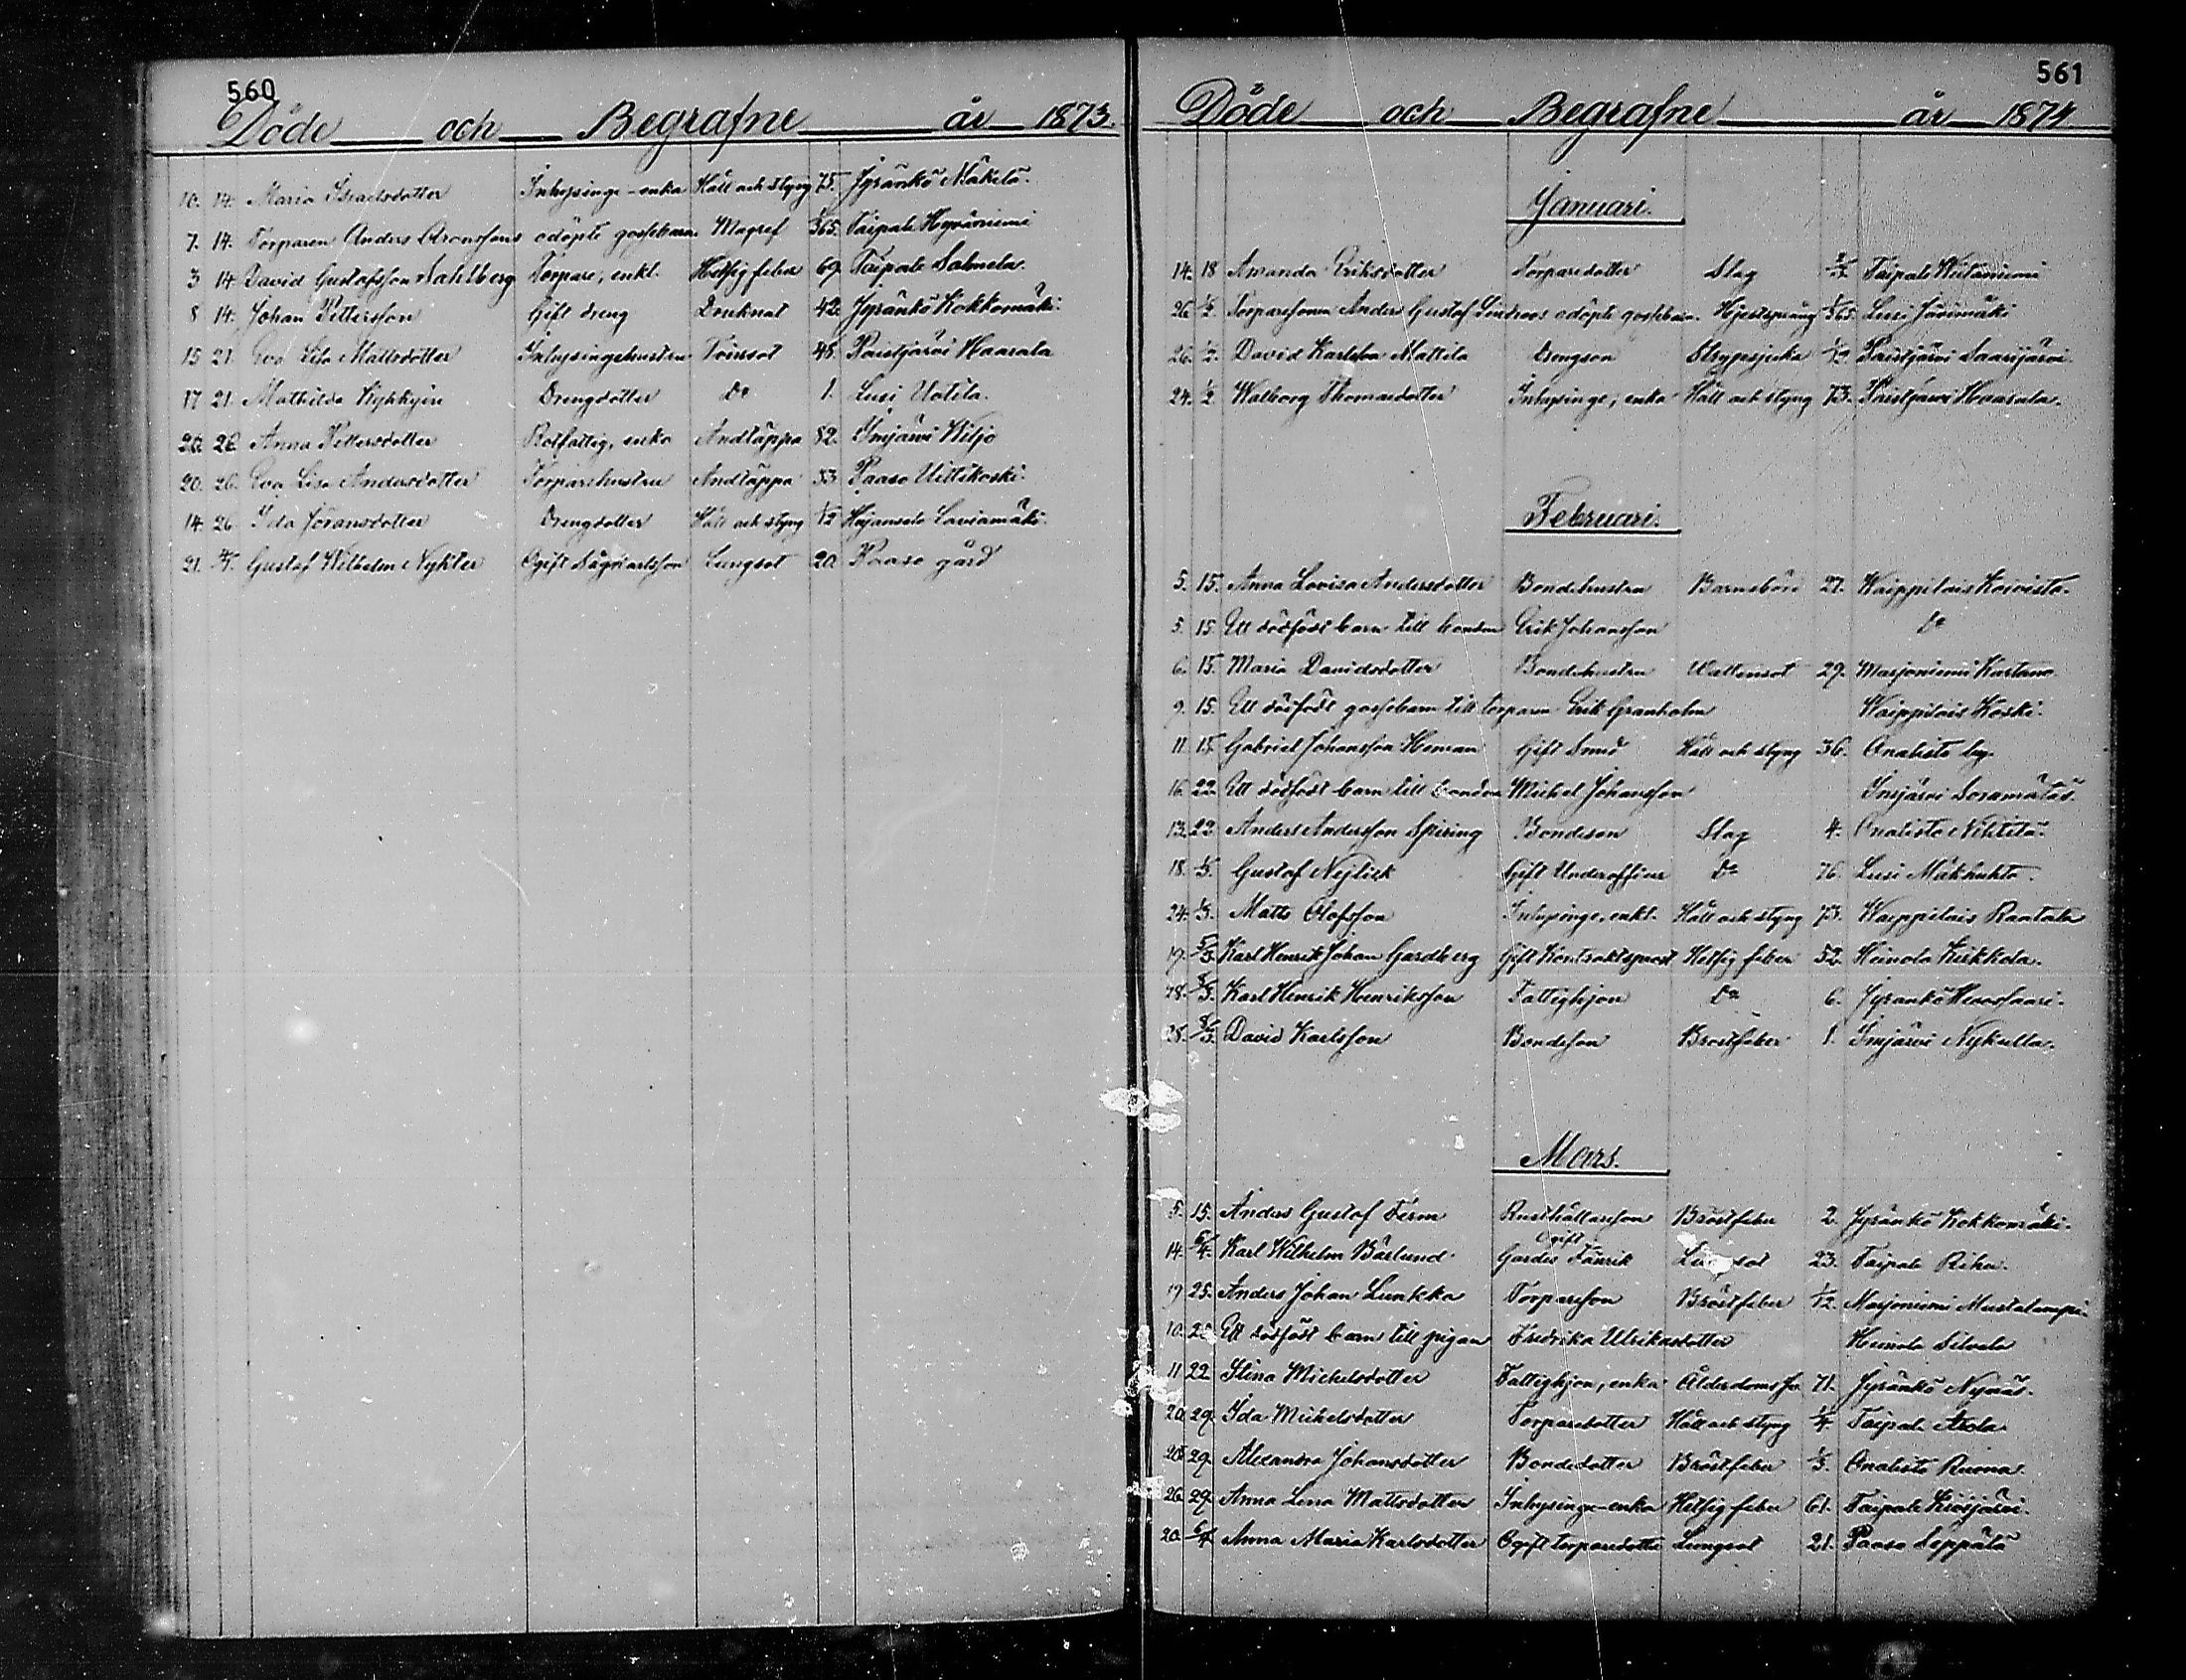 560
Döde och Begrafne år 1873.
10. 14. Maria Israelsdotter Inhysinge-enka Håll och styng 75. Jyränkö Mäkelä.
7. 14. Torparen Anders Aronssons odöpte gossebarn Magref 1/365. Taipale Hyväniemi
3 14 David Gustafsson Sahlberg Torpare, enkl. Hetsig feber 69. Taipale Salmela.
8 14. Johan Pettersson Gift dreng Druknat 42. Jyränkö Kokkomäki.
15 21. Eva Lisa Mattsdotter Inhysingehustru Tvinsot 48. Paistjärvi Haarala
17 21. Mathilda Kyhkyin Drengdotter Do 1. Lusi Uotila.
20. 26. Anna Pettersdotter Rotfattig, enka Andtäppa 82. Imjärvi Wiljo
20. 26. Eva Lisa Andersdotter Torparehustru Andtäppa 53. Paaso Uittikoski.
14. 26 Ida Göransdotter Drengdotter Håll och styng 1/12 Hujansalo Laviamäki.
21. Gustaf Wilhelm Nykter Ogift 20. Paaso gård
561
Döde och Begrafne år 1874
Januari.
14. 18 Amanda Eriksdotter Torparedotter Slag Taipale
26. 1/2. Torparesonen Anders Gustaf Lindroos odöpte gossebarn. 1/365. Lusi Jäsimäki
26. 1/2. David Karlsson Mattila Drengson Strypsjuka 1/12. Paistjärvi Saarijärvi.
24. 1/2. Walborg Thomasdotter Inhysinge, enka Håll och styng 73. Paistjärvi Haarala.
Februari.
5. 15. Anna Lovisa Andersdotter Bondehustru Barnsbörd 27. Waippilais Koivisto.
5. 15. Ett dödfödt barn till bonden Erik Johansson Do
6. 15. Maria Davidsdotter Bondehustru Wattensot 29. Marjoniemi Kartano
9. 15. Ett dödfödt gossebarn till torparen Erik Granholm Waippilais Koski.
11. 15. Gabriel Johansson Heman Gift Smed Håll och styng 36. Onalisto by.
16. 22. Ett dödfödt barn till bonden Michel Johansson Imjärvi
13. 22. Anders Andersson Spiring Bondeson Slag 4. Onalisto Nihtilä.
18. 1/3. Gustaf Nejlick Gift Underofficer Do 76. Lusi Mäkhuhta.
24. 1/3. Matts Olofsson Inhysinge, enkl. Håll och styng 73. Waippilais Rantala
19. 5/3. Karl Henrik Johan Gardberg Gift Kontraktsprost Hetsig feber 52. Heinola Kirkkola.
28. 8/3. Karl Henrik Henriksson Fattighjon Do 6. Jyränkö Hevossaari.
28. 8/3. David Karlsson Bondeson Bröstfeber 1. Imjärvi Nykulla.
Mars.
5. 15. Anders Gustaf Ferm Rusthållareson Bröstfeber 2. Jyränkö Kokkomäki.
Ogift
14. 6/4. Karl Wilhelm Bärlund Gardes Fänrik Lungsot 23. Taipale Riha.
19 25. Anders Johan Lunkka Torpareson Bröstfeber 1/12. Marjoniemi Mustalampi.
10. Ett dödfödt barn till pigan Fredrika Ulrikasdotter Heinola
11 22 Stina Michelsdotter Fattighjon, enka Ålderdoms 71. Jyränkö Nynäs.
20. 29. Ida Michelsdotter Torparedotter Håll och styng 1/4. Taipale
20. 29. Alexandra Johansdotter Bondedotter Bröstfeber Onalisto Ruona.
26. 29. Anna Lena Mattsdotter Inhysinge-enka Hetsig feber 61. Taipale Kivijärvi.
20. 6/4 Anna Maria Karlsdotter Ogift torparedotter Lungsot 21. Paaso Seppälä